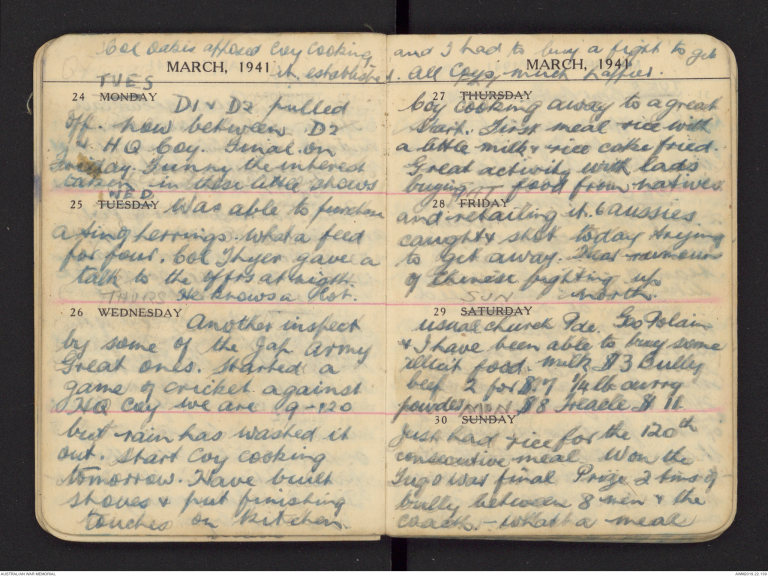 Col Oakes opposed Coy Cooking
MARCH, 1941
it established.
TUES
24 MONDAY D1 & D2 pulled
off. now between D2
& HQ Coy. Final on
Funny the interest
taken in these little shows
WED
25 TUESDAY Was able to purchase
a tin of herrings. What a feed
for four. Col Thyer gave a
talk to the offrs at night.
THURS He knows a lot.
26 WEDNESDAY Another inspect
by some of the Jap Army
Great ones. Started a
game of cricket against
HQ Coy we are 9-120
but rain has washed it
out. Start Coy cooking
tomorrow. Have built
stoves & put finishing
touches on kitchen.
and I had to buy a fight to get
MARCH, 1941
all Coys much happier.
27 THURSDAY
Coy cooking away to a great
start. First meal rice with
a little milk & rice cake fried.
Great activity with lads
buying food from natives
SAT
28 FRIDAY
and retailing it. 6 aussies
caught & shot today trying
to get away. rumours
of Chinese fighting up
SUN north.
29 SATURDAY
usual church Pde. Geo
& I have been able to buy some
illicit food. milk $3 Bully
beef 2 for $ 1/4 lb curry
powder $8 Treacle $
MON
30 SUNDAY
Just had rice for the 120th
consecutive meal. Won the
Tug o War final Prize 2 tins of
bully between 8 men & the
coach. - What a meal
AUSTRALIAN WAR MEMORIAL